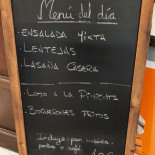 Menú del día
-ENSALADA MIXTA
-LENTEJAS
-LASAÑA CASERA
-LOMO A LA PIMIENTA
-BOQUERONES FRITOS
Incluye: pan, bebida,
postre o café